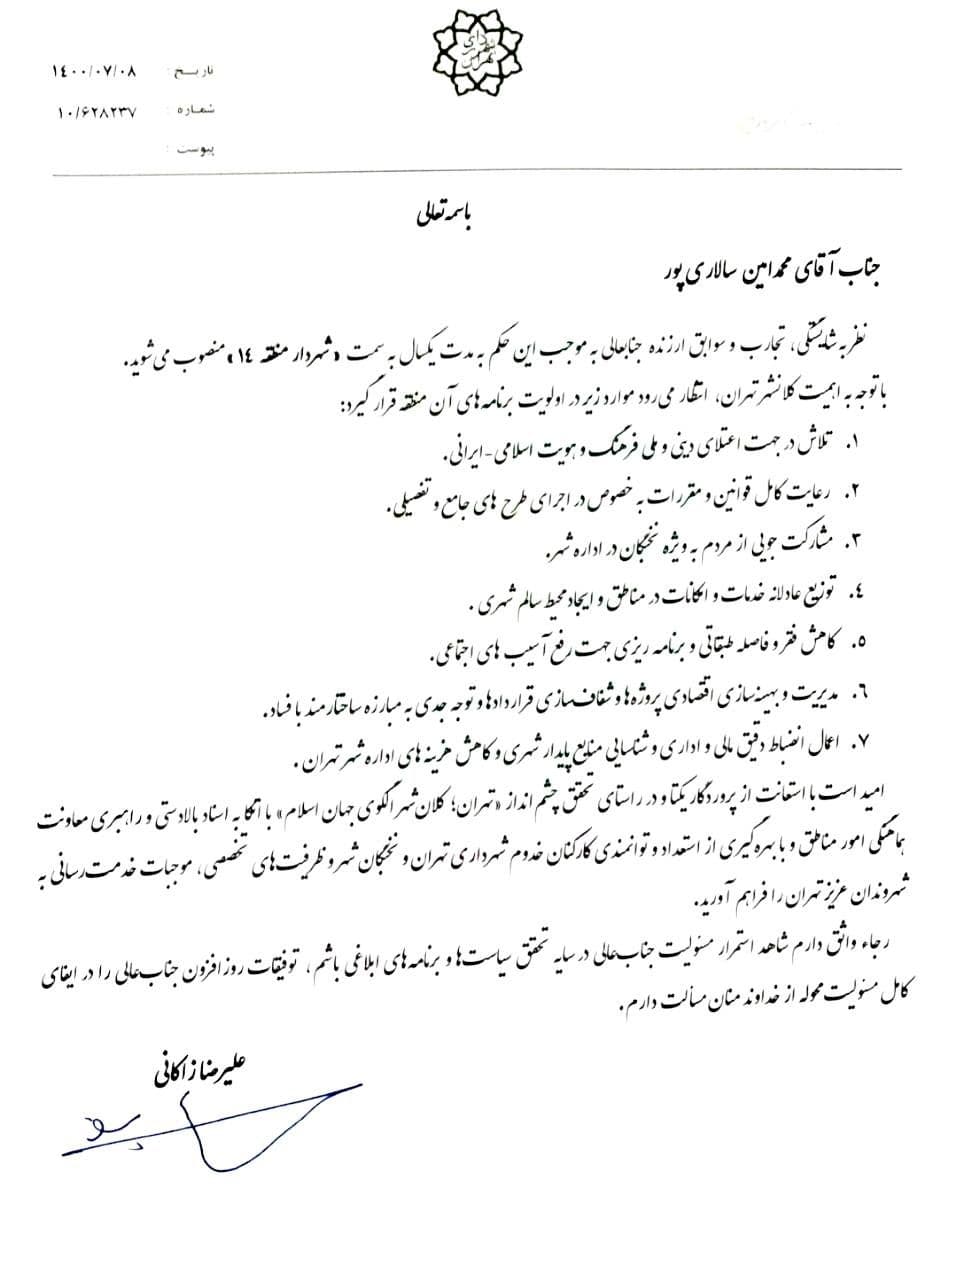 شهرداری تهران
تاریخ : ۱٤۰۰/۰۷/۰۸
شماره : ۱۰/۶۲۸۲۳۷
پیوست :
باسمه تعالی
جناب آقای محمدامین سالاری پور
نظر به شایستگی، تجارب و سوابق ارزنده جنابعالی به موجب این حکم به مدت یکسال به سمت «شهردار منطقه ۱٤» منصوب می شوید.
با توجه به اهمیت کلانشهر تهران، انتظار می رود موارد زیر در اولویت برنامه های آن منطقه قرار گیرد:
۱. تلاش در جهت اعتلای دینی و ملی فرهنگ و هویت اسلامی-ایرانی.
۲. رعایت کامل قوانین و مقررات به خصوص در اجرای طرح های جامع و تفصیلی.
۳. مشارکت جویی از مردم به ویژه نخبگان در اداره شهر.
٤. توزیع عادلانه خدمات و امکانات در مناطق و ایجاد محیط سالم شهری .
۵. کاهش فقر و فاصله طبقاتی و برنامه ریزی جهت رفع آسیب های اجتماعی.
٦. مدیریت و بهینه سازی اقتصادی پروژه ها و شفاف سازی قرار دادها و توجه جدی به مبارزه ساختارمند با فساد.
۷. اعمال انضباط دقیق مالی و اداری و شناسایی منابع پایدار شهری و کاهش هزینه های اداره شهر تهران .
امید است با استعانت از پروردگار یکتا و در راستای تحقق چشم انداز «تهران؛ کلان شهر الگوی جهان اسلام» با اتکا به اسناد بالادستی و راهبری معاونت
هماهنگی امور مناطق و با بهره گیری از استعداد و توانمندی کارکنان خدوم شهرداری تهران و نخبگان شهر و ظرفیت های تخصصی، موجبات خدمت رسانی به
شهروندان عزیز تهران را فراهم آورید.
رجاء واثق دارم شاهد استمرار مسئولیت جناب عالی در سایه تحقق سیاست ها و برنامه های ابلاغی باشم ، توفیقات روز افزون جناب عالی را در ایفای
کامل مسئولیت محوله از خداوند منان مسألت دارم.
علیرضا زاکانی